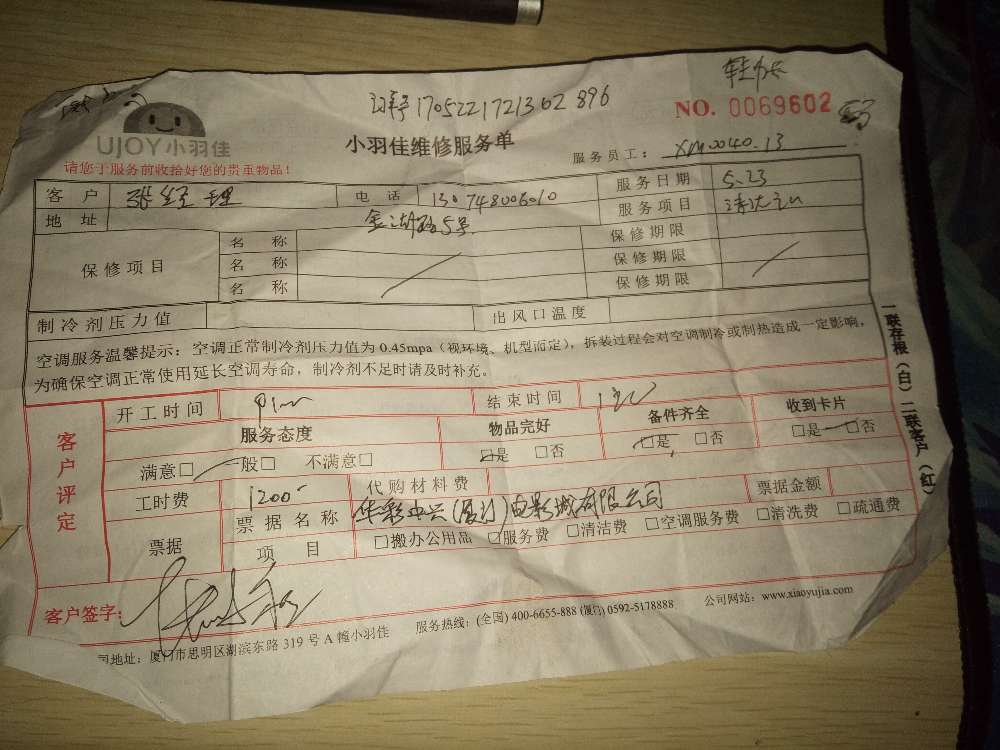 170522172136 2 896
NO. 0069602
UJOY小羽佳
小羽佳维修服务单
服务员工: XM0040.13
请您于服务前收拾好您的贵重物品!
客户 张经理 电话 服务日期 5.23
地址 金湖路5号 服务项目
保修项目 名称 保修期限
名称 保修期限
名称 保修期限
制冷剂压力值 出风口温度
空调服务温馨提示: 空调正常制冷剂压力值为0.45mpa (视环境、机型而定), 拆装过程会对空调制冷或制热造成一定影响,
为确保空调正常使用延长空调寿命, 制冷剂不足时请及时补充。
一联存根(白) 二联客户(红)
客户评定
开工时间 结束时间
服务态度 物品完好 备件齐全 收到卡片
满意□ 一般□ 不满意□ □是 □否 □是 □否 □是 □否
工时费 1200 代购材料费 票据金额
票据 票据名称 华彩中兴(厦门)电影城有限公司
项目 □搬办公用品 □服务费 □清洁费 □空调服务费 □清洗费 □疏通费
客户签字:
司地址: 厦门市思明区湖滨东路 319 号 A 幢小羽佳 服务热线: (全国) 400-6655-888 (厦门) 0592-5178888 公司网站: www.xiaoyujia.com